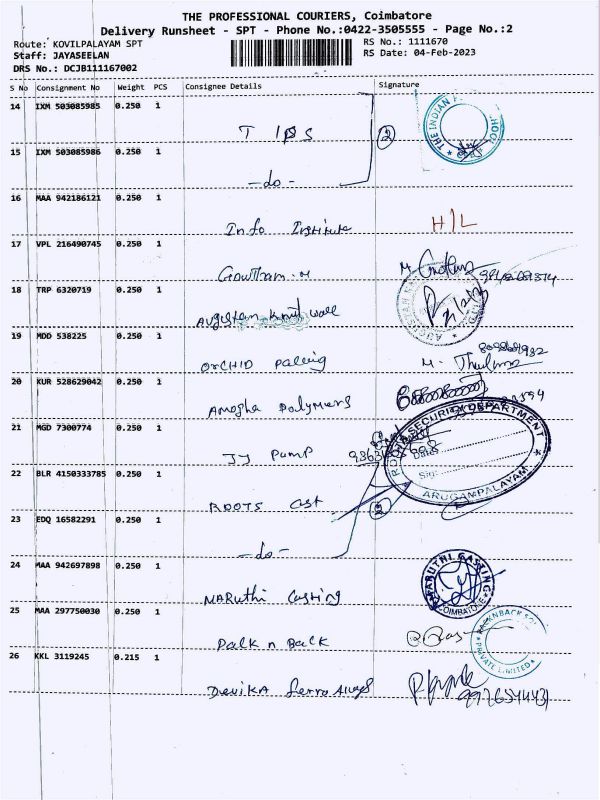 THE PROFESSIONAL COURIERS, Coimbatore
Delivery Runsheet - SPT - Phone No.:0422-3505555 - Page No.:2
Route: KOVILPALAYAM SPT
Staff: JAYASEELAN
DRS No.: DCJB111167002
RS No.: 1111670
RS Date: 04-Feb-2023
S No Consignment No Weight PCS Consignee Details Signature
14 IXM 503085985 0.250 1
T IPS 2
THE INDIAN
15 IXM 503085986 0.250 1
-do-
16 MAA 942186121 0.250 1
Info Institute H/L
17 VPL 216490745 0.250 1
Gowtham.M
18 TRP 6320719 0.250 1
Augustan Knit
19 MDD 538225 0.250 1
ORCHID
20 KUR 528629042 0.250 1
Amogha Polymers
21 MGD 7300774 0.250 1
JJ Pump
SECURITY DEPARTMENT
ARUGAMPALAYAM
22 BLR 4150333785 0.250 1
ROOTS Cast 2
23 EDQ 16582291 0.250 1
-do-
24 MAA 942697898 0.250 1
MARuthi Casting
MARUTHI CASTING
COIMBATORE
25 MAA 297750030 0.250 1
Pack n Back
PRIVATE LIMITED
26 KKL 3119245 0.215 1
DeviKA Ferro Alloys
9976544431